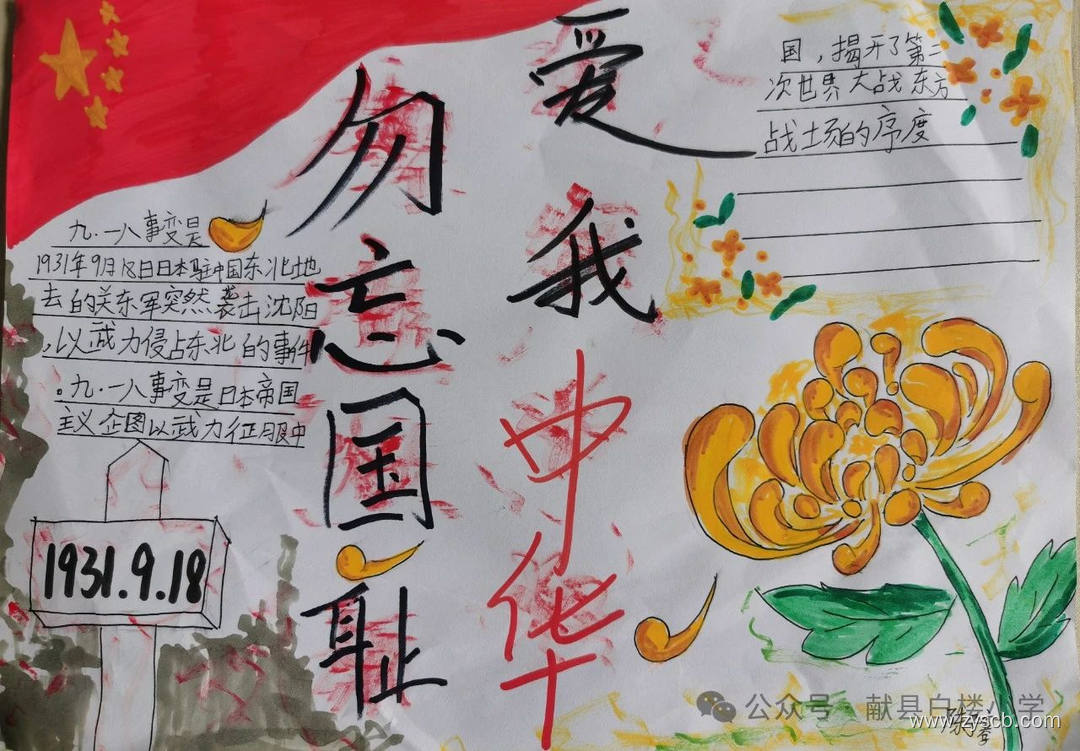 勿忘国耻
爱我中华
九·一八事变是
1931年9月18日日本驻中国东北地
去的关东军突然袭击沈阳
,以武力侵占东北的事件
。九·一八事变是日本帝国
主义企图以武力征服中
国，揭开了第二
次世界大战东方
战场的序度
1931.9.18
公众号·献县白楼小学
www.zyscb.com